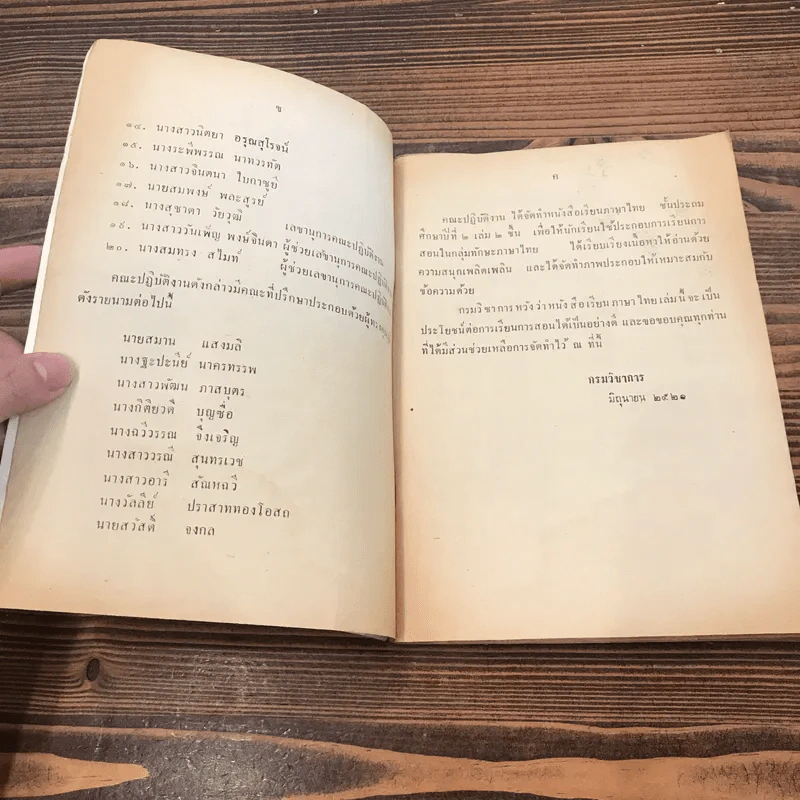 ข
๑๔. นางสาวนิตยา อรุณสุโรจน์
๑๕. นางระพีพรรณ นาทวรทัต
๑๖. นางสาวจินตนา ใบกาซูยี
๑๗. นายสมพงษ์ พละสูรย์
๑๘. นางสุชาดา วัยวุฒิ เลขานุการคณะปฏิบัติงาน
๑๙. นางสาววันเพ็ญ พงษ์จินดา ผู้ช่วยเลขานุการคณะปฏิบัติงาน
๒๐. นางสมทรง สไมท์ ผู้ช่วยเลขานุการคณะปฏิบัติ
คณะปฏิบัติงานดังกล่าวมีคณะที่ปรึกษาประกอบด้วย
ดังรายนามต่อไปนี้
นายสมาน แสงมลิ
นางฐะปะนีย์ นาครทรรพ
นางสาวพัฒน ภาสบุตร
นางกิติยวดี บุญซื่อ
นางฉวีวรรณ จึงเจริญ
นางสาววรณี สุนทรเวช
นางสาวอารี สัณหฉวี
นางวัลลีย์ ปราสาททองโอสถ
นายสวัสดิ์ จงกล
ค
คณะปฏิบัติงาน ได้จัดทำหนังสือเรียนภาษาไทย ชั้นประถม
ศึกษาปีที่ ๒ เล่ม ๒ ขึ้น เพื่อให้นักเรียนใช้ประกอบการเรียนการ
สอนในกลุ่มทักษะภาษาไทย ได้เรียบเรียงเนื้อหาให้อ่านด้วย
ความสนุกเพลิดเพลิน และได้จัดทำภาพประกอบให้เหมาะสมกับ
ข้อความด้วย
กรมวิชาการ หวังว่า หนังสือเรียนภาษาไทยเล่มนี้ จะเป็น
ประโยชน์ต่อการเรียนการสอนได้เป็นอย่างดี และขอขอบคุณทุกท่าน
ที่ได้มีส่วนช่วยเหลือการจัดทำไว้ ณ ที่นี้
กรมวิชาการ
มิถุนายน ๒๕๒๑